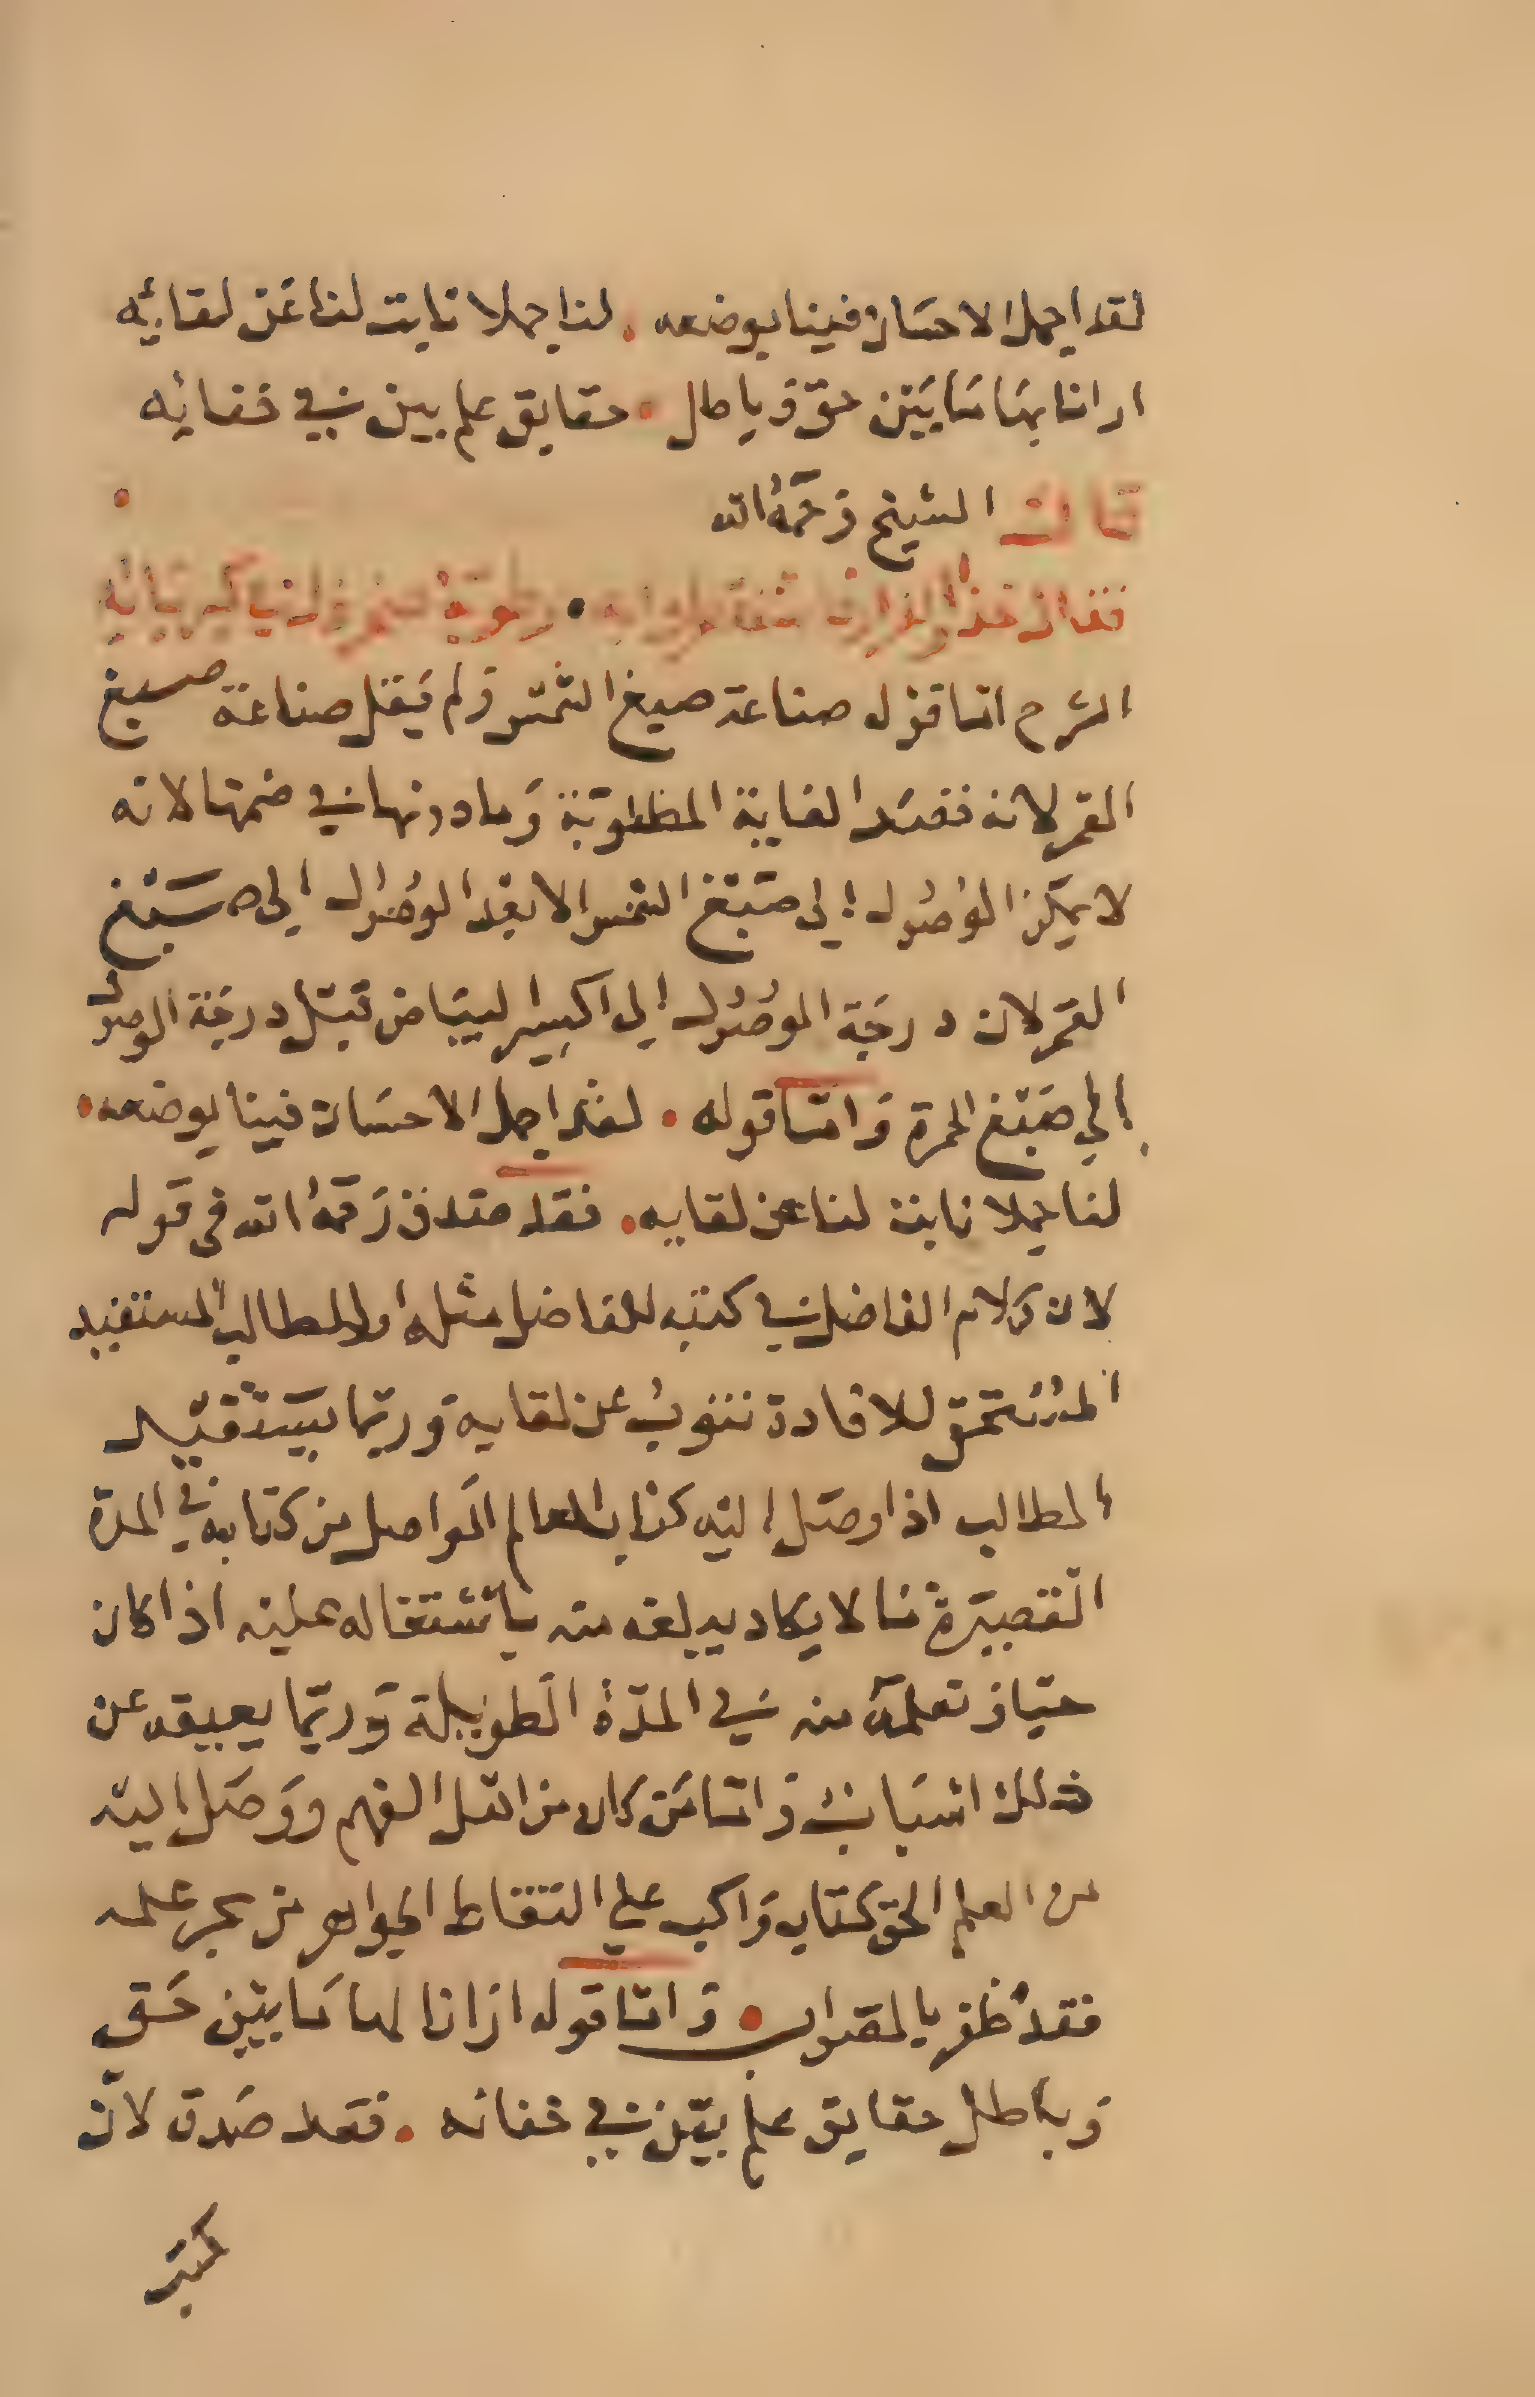 لقد اجمل الاحسان فينا بوضعه . لنا جملا نابت لنا عن لقائه
ارانا بها ما بين حق وباطل . حقايق علم بين في خفائه
قال الشيخ رحمه الله
الشرح اما قوله صناعة صبغ الشمس ولم يقل صناعة صبغ
القمر لانه قصد الغاية المطلوبة وما دونها في ضمنها لانه
لا يمكن الوصول إلى صبغ الشمس الا بعد الوصول الى صبغ
القمر لان درجة الوصول إلى اكسير البياض قبل درجة الوصول
إلي صبغ الحمرة واما قوله . لقد اجمل الاحسان فينا بوضعه .
لنا جملا نابت لنا عن لقايه . فقد صدق رحمه الله في قوله
لان كلام الفاضل في كتبه للفاضل مثله او للطالب المستفيد
المستحق للافادة تنوب عن لقايه وربما يستفيد
الطالب اذا وصل إليه كتاب العالم الواصل من كتابه في المدة
القصيرة ما لا يكاد يبلغه منه باشتغاله عليه اذا كان
حيا وتعلمه منه في المدة الطويلة وربما يعيقه عن
ذلك اسباب واما من كان من اهل الفهم ووصل اليه
من العلم الحق كتاب واكب علي التقاط الجواهر من بحر علمه
فقد ظفر بالصواب . واما قوله ارانا لها ما بين حق
وباطل حقايق علم بين في خفائه . فقد صدق لان
كتبه